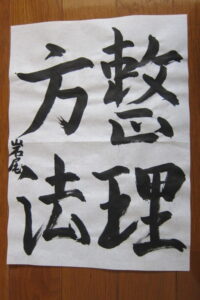 整理
方法
岩尾